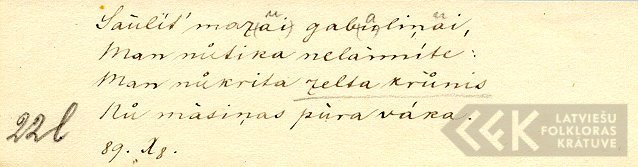 Saulīt' mazāi gabaliņāi,
Man nůtika nelāimīte:
Man nůkrita zelta krůnis
Nů māsiņas pūra vāka.
22l
89. Xg.
LATVIEŠU
FOLKLORAS
KRĀTUVE